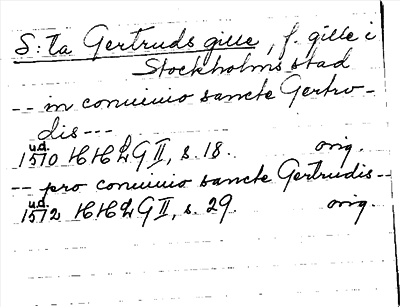 S:ta Gertruds gille, f. gille i
Stockholms stad
-- in conuiuio sancte Gertru-
dis---
u.d.
1510 HHLG II, s. 18. orig.
-- pro conuiuio sancte Gertrudis--
u.d.
1512 HHLG II, s. 29. orig.